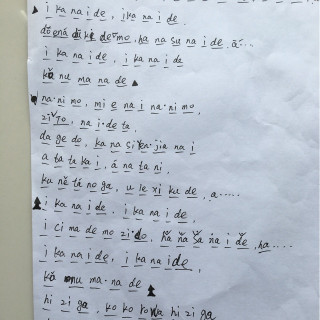 i ka na i de, i ka na i de.
dō enā dǔ ki de mo, ha na su na i de, ā……
i ka na i de, i ka na i de
kǎ nu ma na de
na·ni mo, mi e na i na ni mo,
zi ǐ to, na i·de ta,
da ge do, ka na si ěn·jia na i
a ta ta ka i, á na ta ni,
ku ně tá no ga, u le xi ku de, a……
i ka na i de, i ka na i de,
i ci ma de mo zi·do, hǎ nǎ sǎ na i de, ha……
i ka na i de, i ka na i de,
kǎ nu ma·na de
hi zi ga, ko ko ro wa hi zi ga